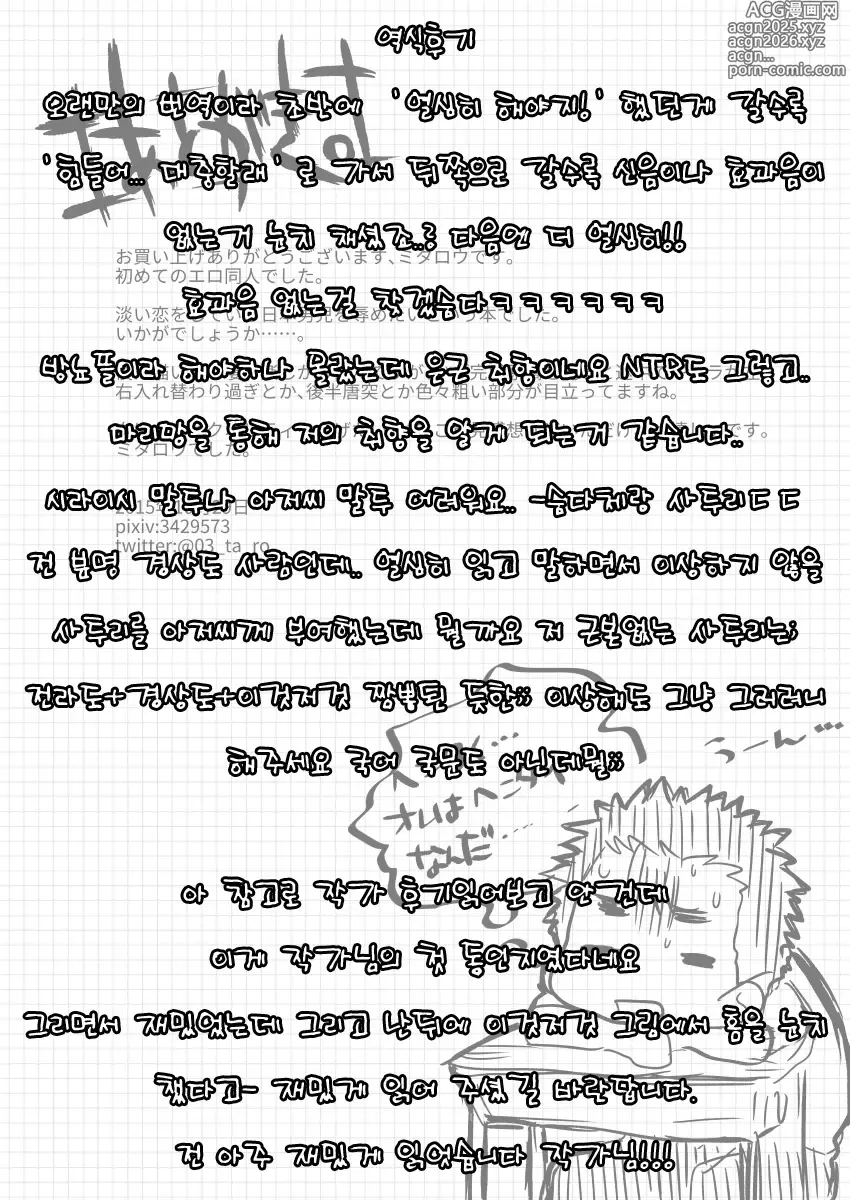 ACG漫画网
acgn2025.xyz
acgn2026.xyz
acgn...
porn-comic.com
역식후기
오랜만의 번역이라 초반에 '열심히 해야지!' 했던게 갈수록
'힘들어... 대충할래' 로 가서 뒤쪽으로 갈수록 신음이나 효과음이
없는거 눈치 채셨죠..; 다음엔 더 열심히!!
효과음 없는걸 찾겠슴다ㅋㅋㅋㅋㅋㅋㅋ
방뇨플이라 해야하나 몰랐는데 은근 취향이네요 NTR도 그렇고..
마리망을 통해 저의 취향을 알게 되는거 같습니다..
시라이시 말투나 아저씨 말투 어려워요.. -슴다체랑 사투리ㄷㄷ
전 분명 경상도 사람인데.. 열심히 읽고 말하면서 이상하지 않을
사투리를 아저씨께 부여했는데 뭘까요 저 근본없는 사투리는;
전라도+경상도+이것저것 짬뽕된 듯한;; 이상해도 그냥 그러려니
해주세요 국어 국문도 아닌데뭘;;
아 참고로 작가 후기읽어보고 안 건데
이게 작가님의 첫 동인지였다네요
그리면서 재밌었는데 그리고 난뒤에 이것저것 그림에서 흠을 눈치
챘다고~ 재밌게 읽어 주셨길 바란답니다.
전 아주 재밌게 읽었습니다 작가님!!!
あとがきの
お買い上げありがとうございます、ミタロウです。
初めてのエロ同人でした。
いかがでしょうか……。
右入れ替わり過ぎとか、後半唐突とか色々粗い部分が目立ってますね。
ミタロウでした。
pixiv:3429573
twitter:@03_ta_ro
うーん…
オレはヘンタイ
なんだ……